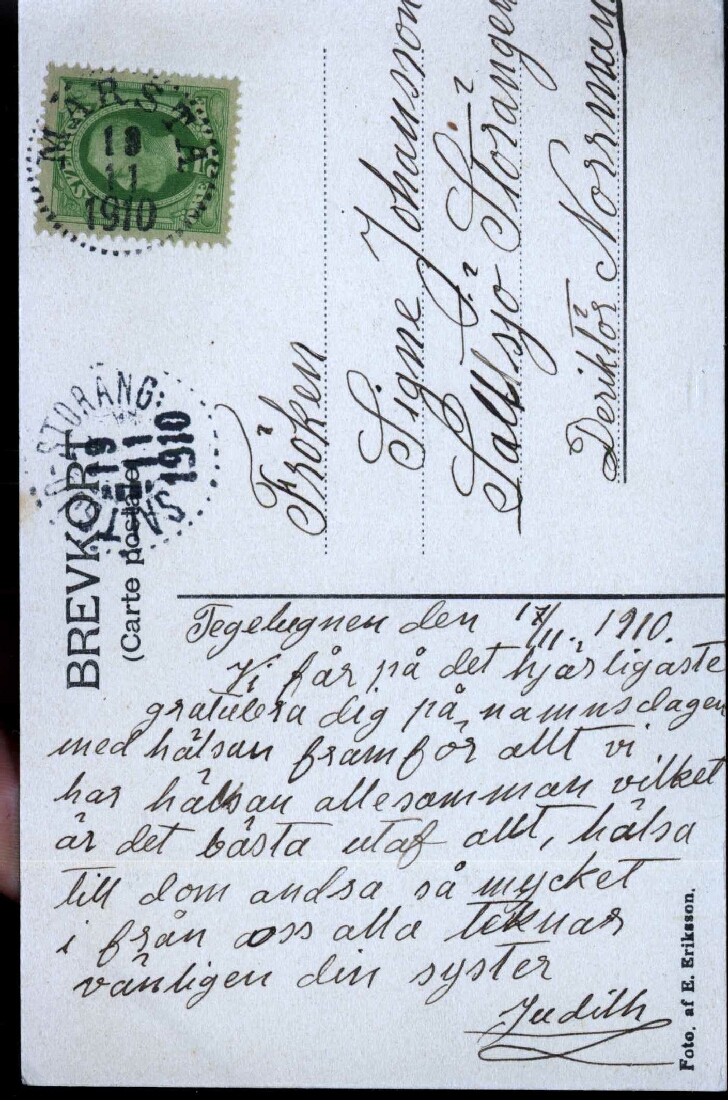 MÄRSTA
18
11
1910
STORÄNG:
19
11
1910
BREVKORT
(Carte postale)
Fröken
Signe Johansson
Saltsjö Storängen
Deriktör Norrman
Tegelugnen den 17/11. 1910.
Vi får på det hjärligaste
gratulera dig på namnsdagen
med hälsan framför allt vi
har hälsan allesamman vilket
är det bästa utaf allt, hälsa
till dom andra så mycket
i från oss alla teknar
vänligen din syster
Judith
Foto. af E. Eriksson.